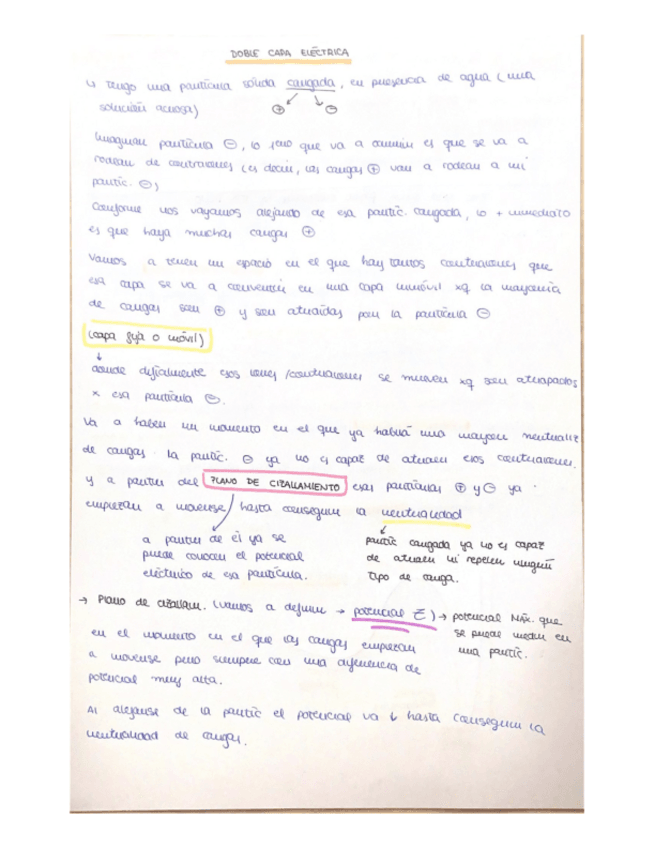 DOBLE CAPA ELÉCTRICA
↳ Tengo una partícula sólida cargada, en presencia de agua (una
solución acuosa) ⊕ ⊖
Imaginan partícula ⊖, lo que va a ocurrir es que se va a
rodear de contraiones (es decir, las cargas ⊕ van a rodear a mi
partíc. ⊖)
Conforme nos vayamos alejando de esa partíc. cargada, lo + inmediato
es que haya muchas cargas ⊕
Vamos a tener un espacio en el que hay tantos contraiones que
esa capa se va a convertir en una capa inmóvil xq la mayoría
de cargas son ⊕ y son atraídas por la partícula ⊖
(capa fija o móvil)
↓
donde difícilmente esos iones/contraiones se mueven xq son atrapados
x esa partícula ⊖.
Va a haber un momento en el que ya habrá una mayor neutraliz
de cargas. la partíc. ⊖ ya no es capaz de atraer esos contraiones.
y a partir del PLANO DE CIZALLAMIENTO esas partículas ⊕ y ⊖ ya
empiezan a moverse hasta conseguir la neutralidad
a partir de él ya se
puede conocer el potencial
eléctrico de esa partícula.
partíc cargada ya no es capaz
de atraer ni repeler ningún
tipo de carga.
→ Plano de cizallam. (vamos a definir → potencial ζ) → potencial MÁX. que
se puede medir en
una partíc.
en el momento en el que las cargas empiezan
a moverse pero siempre con una diferencia de
potencial muy alta.
Al alejarse de la partíc el potencial va ↓ hasta conseguir la
neutralidad de cargas.